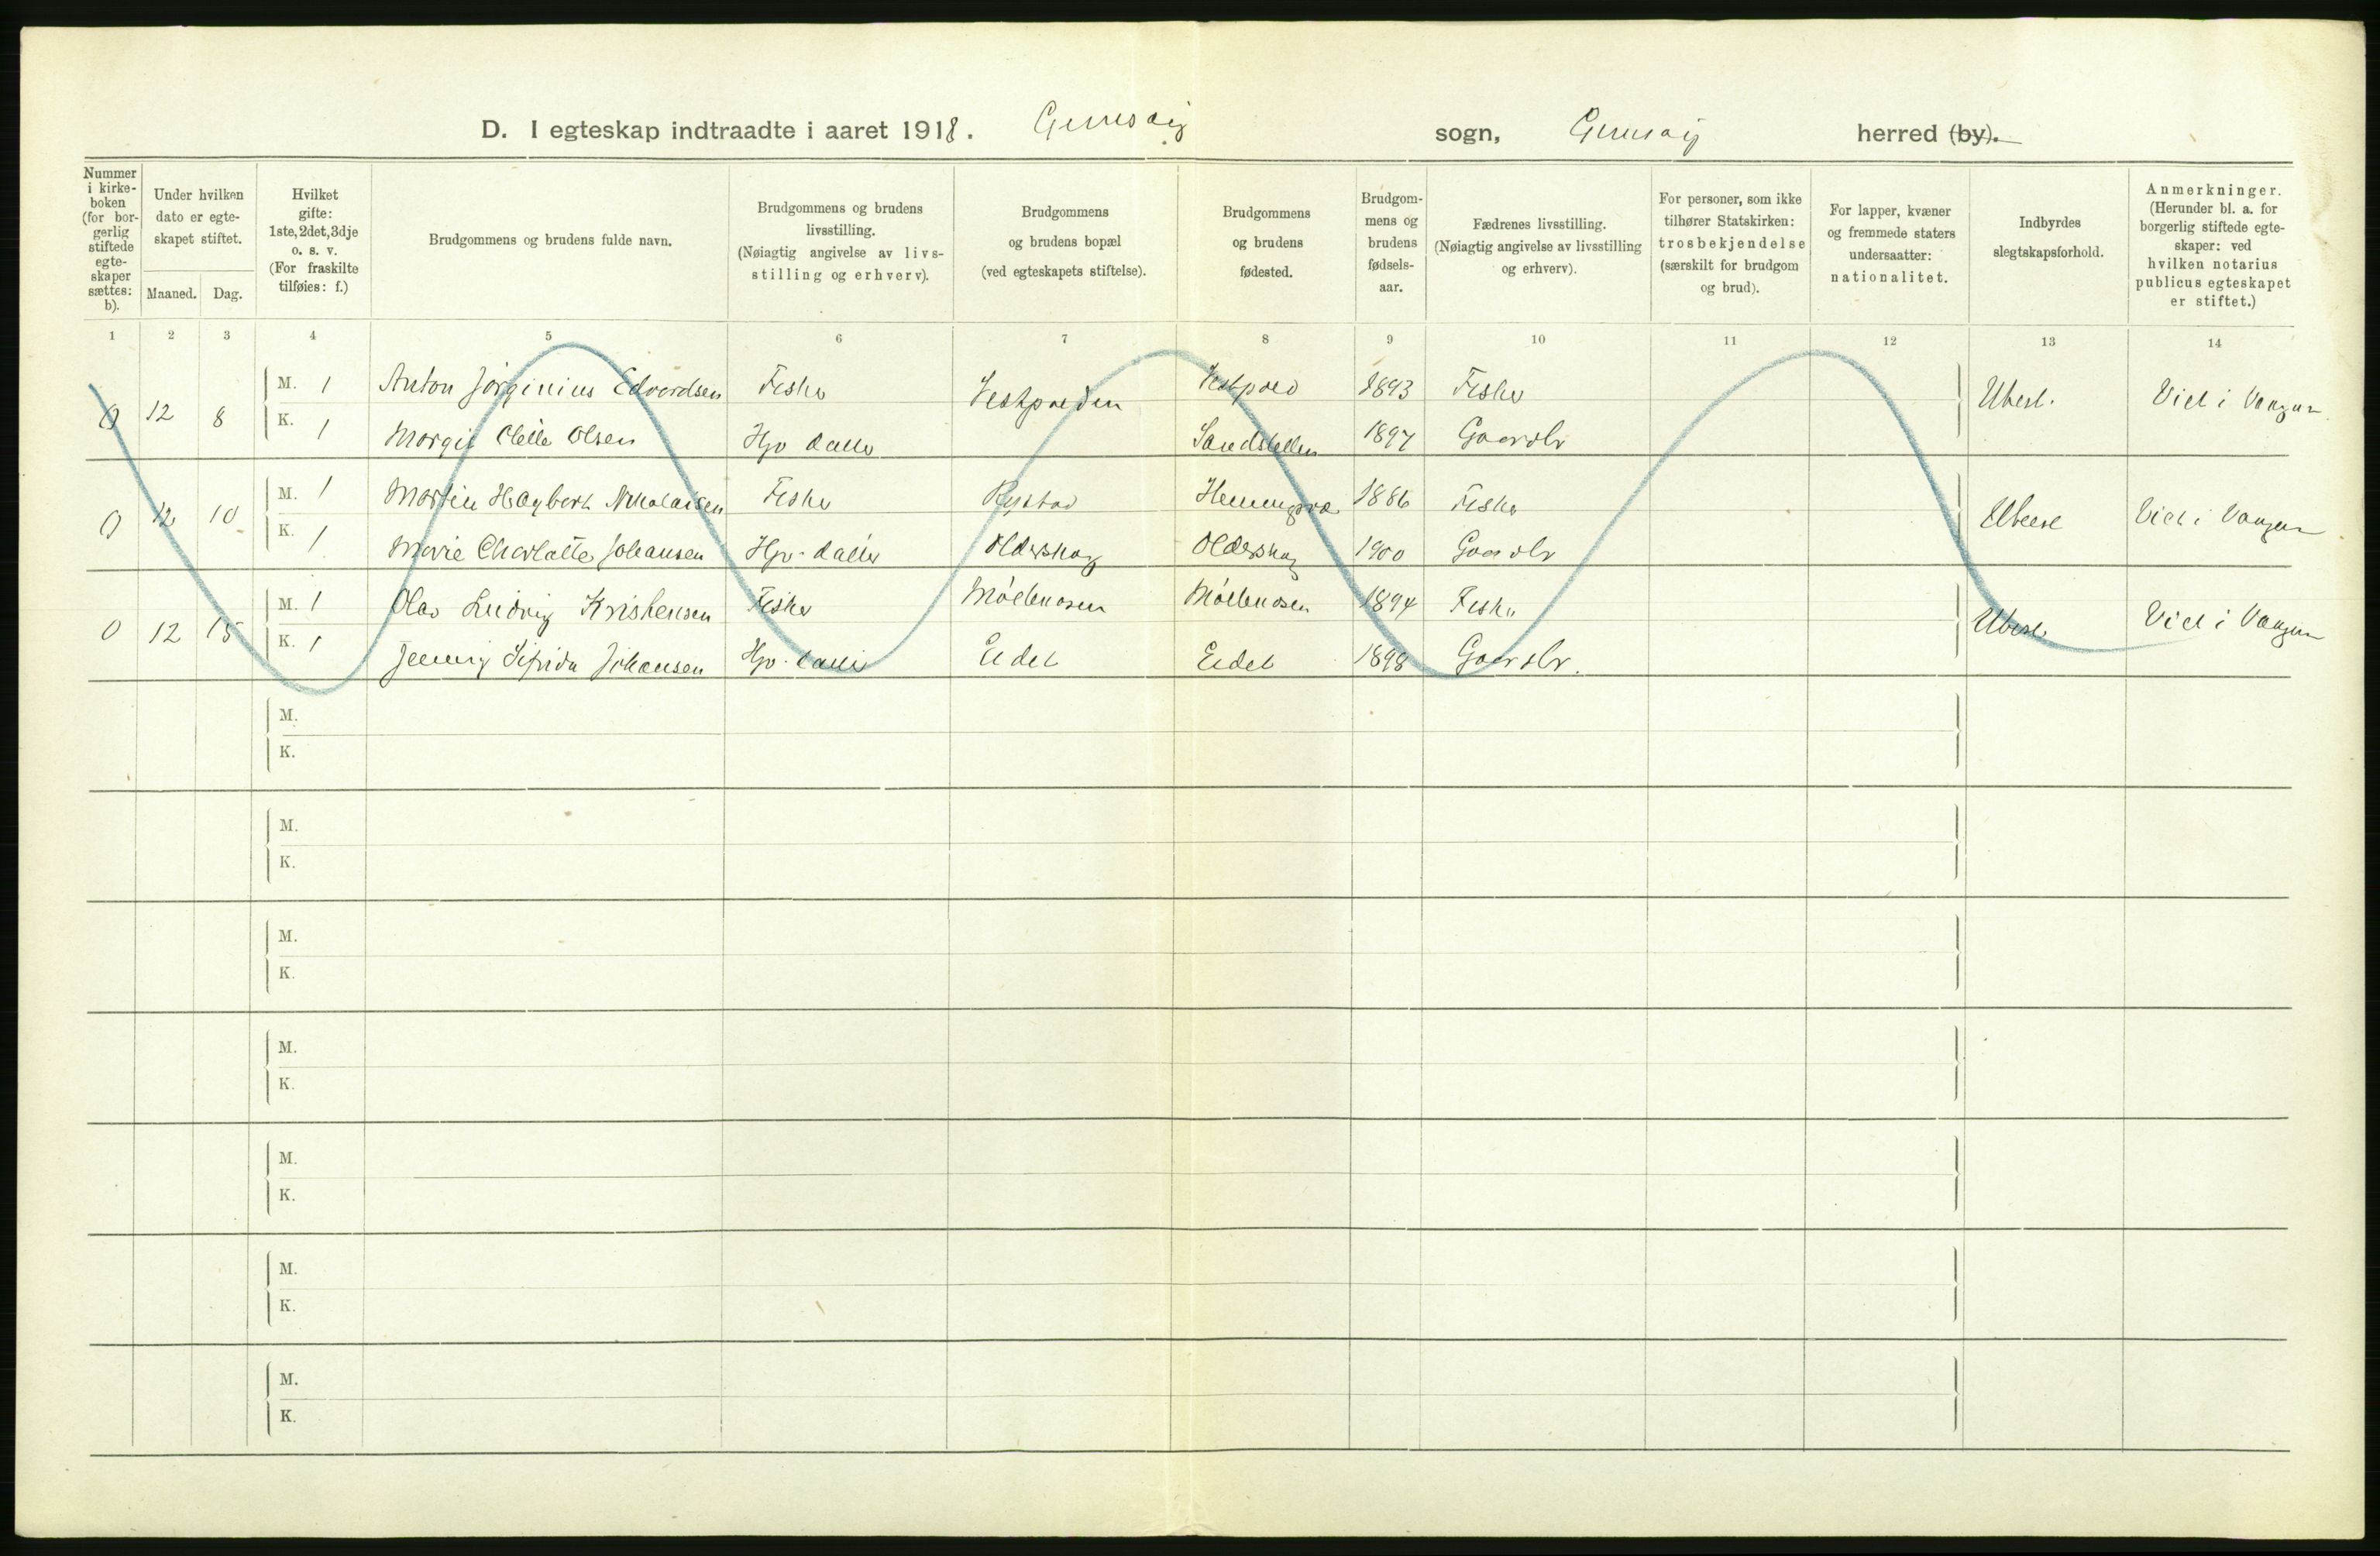 D. I egteskap indtraadte i aaret 1918. Gimsøy sogn, Gimsøy herred (by).
Nummer i kirke-boken (for bor-gerlig stiftede egte-skaper sættes: b).
Under hvilken dato er egte-skapet stiftet.
Maaned. Dag.
Hvilket gifte: 1ste, 2det, 3dje o. s. v. (For fraskilte tilføies: f.)
Brudgommens og brudens fulde navn.
Brudgommens og brudens livsstilling. (Nøiagtig angivelse av livs-stilling og erhverv).
Brudgommens og brudens bopæl (ved egteskapets stiftelse).
Brudgommens og brudens fødested.
Brudgom-mens og brudens fødsels-aar.
Fædrenes livsstilling. (Nøiagtig angivelse av livsstilling og erhverv).
For personer, som ikke tilhører Statskirken: trosbekjendelse (særskilt for brudgom og brud).
For lapper, kvæner og fremmede staters undersaatter: nationalitet.
Indbyrdes slegtskapsforhold.
Anmerkninger. (Herunder bl. a. for borgerlig stiftede egte-skaper: ved hvilken notarius publicus egteskapet er stiftet.)
1 2 3 4 5 6 7 8 9 10 11 12 13 14
0 12 8 M. 1 Anton Jørginius Edvardsen Fisker Vestpollen Vestpoll 1893 Fisker Ubesl. Viet i Vaagan
K. 1 Margit Olsen Hjv. datter 1897 Gaardbr
0 12 10 M. 1 Martin Hagbart Nikolaisen Fisker Rystad 1886 Fisker Ubesl Viet i Vaagan
K. 1 Marie Charlotte Johansen Hjv. datter Olderskog Olderskog 1900 Gaardbr
0 12 15 M. 1 Olav Ludvig Kristensen Fisker 1894 Fisker Ubesl. Viet i Vaagan
K. 1 Jenny Johansen Hjv. datter Eidet Eidet 1898 Gaardbr.
M.
K.
M.
K.
M.
K.
M.
K.
M.
K.
M.
K.
M.
K.